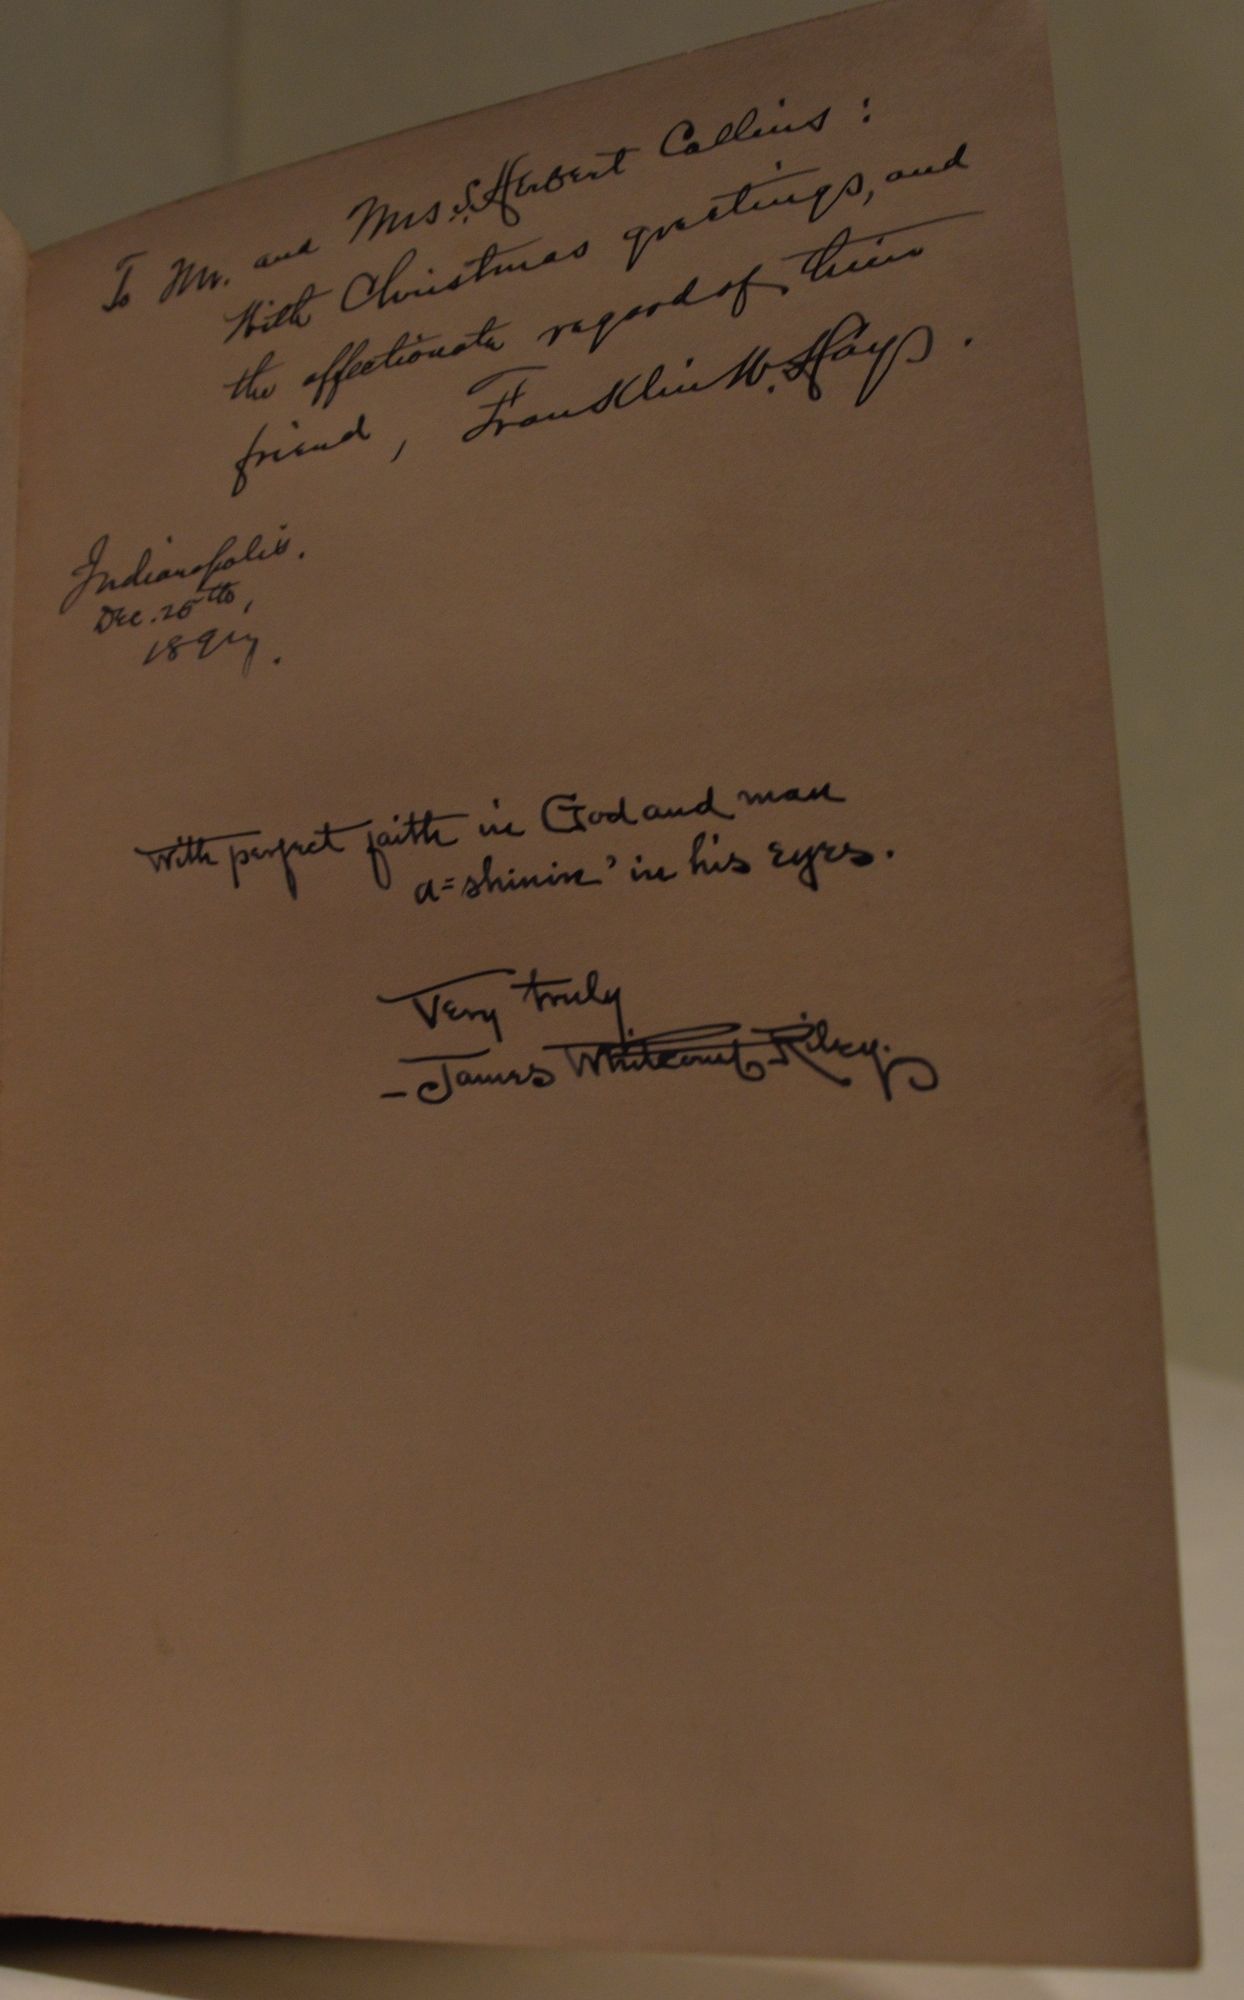 To Mr. and Mrs. S. Herbert Collins:
With Christmas greetings, and
the affectionate regard of their
friend, Franklin W. Hays.
Indianapolis.
Dec. 25th,
1897.
With perfect faith in God and man
a=shinin' in his eyes.
Very truly
—James Whitcomb Riley.